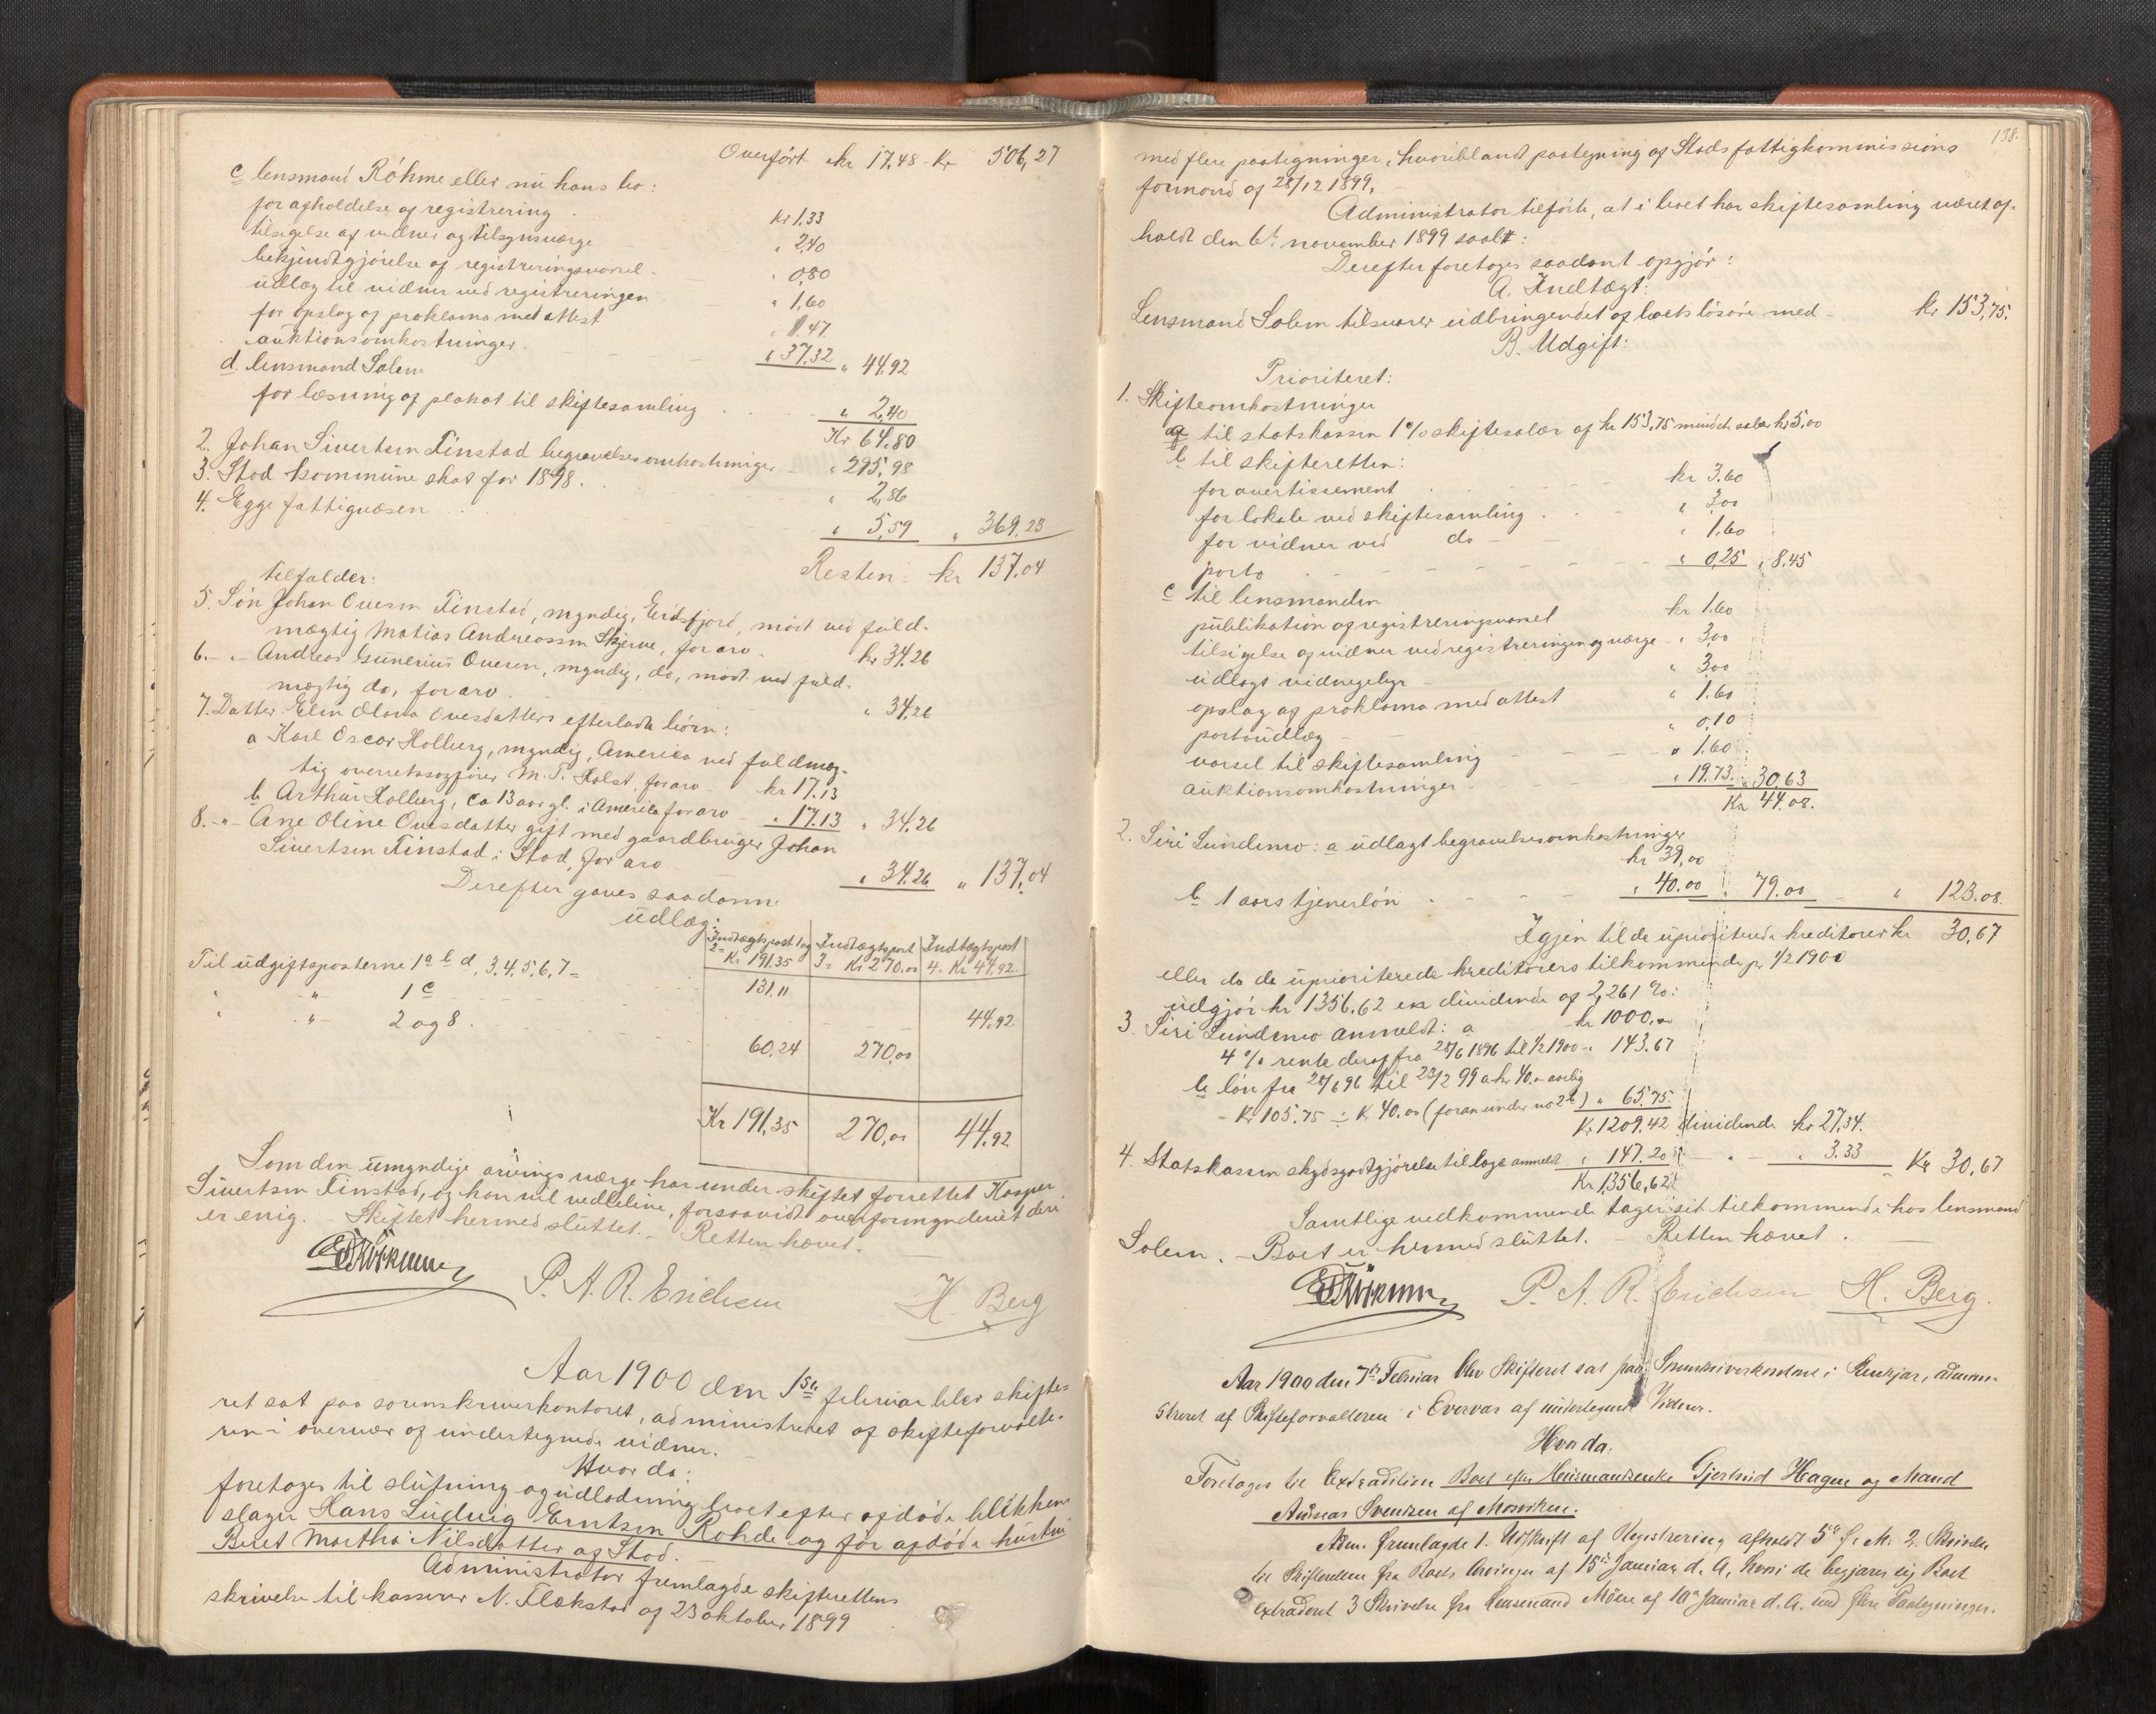 Overført kr 17.48 - Kr 506,27
c lensmand Röhme eller nu hans bo:
for afholdelse af registrering . kr 1.33
tilsigelse af vidner og tilsynsværge " 2,40
bekjendtgjørelse af registreringsvarsel - " 0,80
udlæg til vidner ved registreringen " 1,60
for opslag af proklama med attest " 1,47
auktionsomkostninger. " 37.32 " 44.92
d. lensmand Solem
for læsning af plakat til skiftesamling " 2,40
Kr 64,80
2. Johan Sivertsen Finstad begravelsesomkostninger - " 295,98
3. Stod kommune skat for 1898. " 2,86
4. Egge fattigvæsen " 5,59 " 369,23
Resten: kr 137,04
tilfalder:
5. Søn Johan Ovesen Finstad, myndig, Eidsfjord, mødt ved fuld-
mægtig Matias Andreassen Skjerve, for arv - kr 34.26
6. - " - Andreas Gunerius Ovesen, myndig, do, mødt ved fuld-
mægtig do, for arv . " 34,26
7. Datter Elen Olava Ovesdatters efterladte børn:
a Karl Oscar Holberg, myndig, Amerika ved fuldmæg-
tig overretssagfører M. T. Holst, for arv - kr 17.13
b Arthur Holberg, ca 13 aar gl. i Amerika for arv - " 17.13 " 34,26
8. - " - Ane Oline Ovesdatter gift med gaardbruger Johan
Sivertsen Finstad i Stod, for arv " 34.26 " 137,04
Derefter gaves saadanne
udlæg:
Indtægtspost 1 og 2 = Kr 191.35 | Indtægtspost 3 = Kr 270,00 | Indtægtspost 4. Kr 44,92
Til udgiftsposterne 1 a b d, 3. 4. 5. 6. 7 = 131,11
" - " - 1 c 44,92
" - " - 2 og 8. 60,24 270,00
Kr 191,35 270,00 44,92
Som den umyndige arvings værge har under skiftet forrettet Kasper
Sivertsen Finstad, og han vil vedblive, forsaavidt overformynderiet deri
er enig. - Skiftet hermed sluttet. - Retten hævet.
P. A. R. Erichsen H. Berg
Aar 1900 den 1ste februar blev skifte-
ret sat paa sorenskriverkontoret, administreret af skifteforvalte-
ren i overvær af undertegnede vidner.
Hvor da:
foretages til slutning og udlodning boet efter afdøde blikken-
slager Hans Ludvig Erntsen Rohde og før afdøde hustru
Beret Martha Nilsdatter af Stod.
Administrator fremlagde skifterettens
skrivelse til kasserer N. Flekstad af 23 oktober 1899
138.
med flere paategninger, hvoriblandt paategning af Stods fattigkommissions
formand af 28/12 1899.
Administrator tilførte, at i boet har skiftesamling været af-
holdt den 6te november 1899 saalt:
Derefter foretages saadant opgjør:
A. Indtægt:
Lensmand Solem tilsvarer udbringendet af boets løsøre med - kr 153,75.
B. Udgift:
Prioriteret:
1. Skifteomkostninger
a til statskassen 1% skiftesalær af kr 153,75 mindste salær kr 5,00
b til skifteretten:
for avertissement kr 3.60
for lokale ved skiftesamling . " 3,00
for vidner ved do - " 1.60
porto " 0,25 " 8.45
c til lensmanden
publikation af registreringsvarsel kr 1.60
tilsigelse af vidner ved registreringen og værge - " 3,00
udlagt vidnegebyr " 3,00
opslag af proklama med attest " 1.60
portoudlæg " 0,10
varsel til skiftesamling " 1.60
auktionsomkostninger - " 19.73. " 30,63
Kr 44.08.
2. Siri Sundmo: a udlagt begravelsesomkostninger
kr 39,00
b 1 aars tjenerløn " 40.00 " 79.00 " 123.08.
Igjen til de uprioriterede kreditorer kr 30,67
eller da de uprioriterede kreditorers tilkommende pr 1/2 1900
udgjør kr 1356,62 en dividende af 2,261 %:
3. Siri Sundmo anmeldt: a kr 1000,00
4 % rente deraf fra 28/6 1896 til 1/2 1900 - " 143.67
b løn fra 28/6 96 til 23/2 99 a kr 40,- aarlig
- Kr 105.75 ÷ K 40.00 (foran under no 2 b) " 65.75.
Kr 1209.42 dividende kr 27,34.
4. Statskassen skydsgodtgjørelse til læge anmeldt " 147.20 - " - " 3.33 Kr 30,67
Kr 1356,62
Samtlige vedkommende tager sit tilkommende hos lensmand
Solem. - Boet er hermed sluttet. - Retten hævet.
P. A. R. Erichsen H. Berg.
Aar 1900 den 7de Februar blev Skifteret sat paa Sorenskriverkontoret i Stenkjær, admini-
streret af Skifteforvalteren i Overvær af undertegnede Vidner.
Hvor da:
Foretages til Extradition Boet efter Husmandsenke Gjertrud Hagen og Mand
Andreas Svendsen af Mosviken.
Adm. fremlagde 1. Udskrift af Registrering afholdt 5te f. M. 2. Skrivelse
til Skifteretten fra Boets Arvinger af 15de Januar d. A, hvori de begjærer sig Boet
extraderet 3 Skrivelse fra Lensmand Møen af 10de Januar d. A. med flere Paategninger.